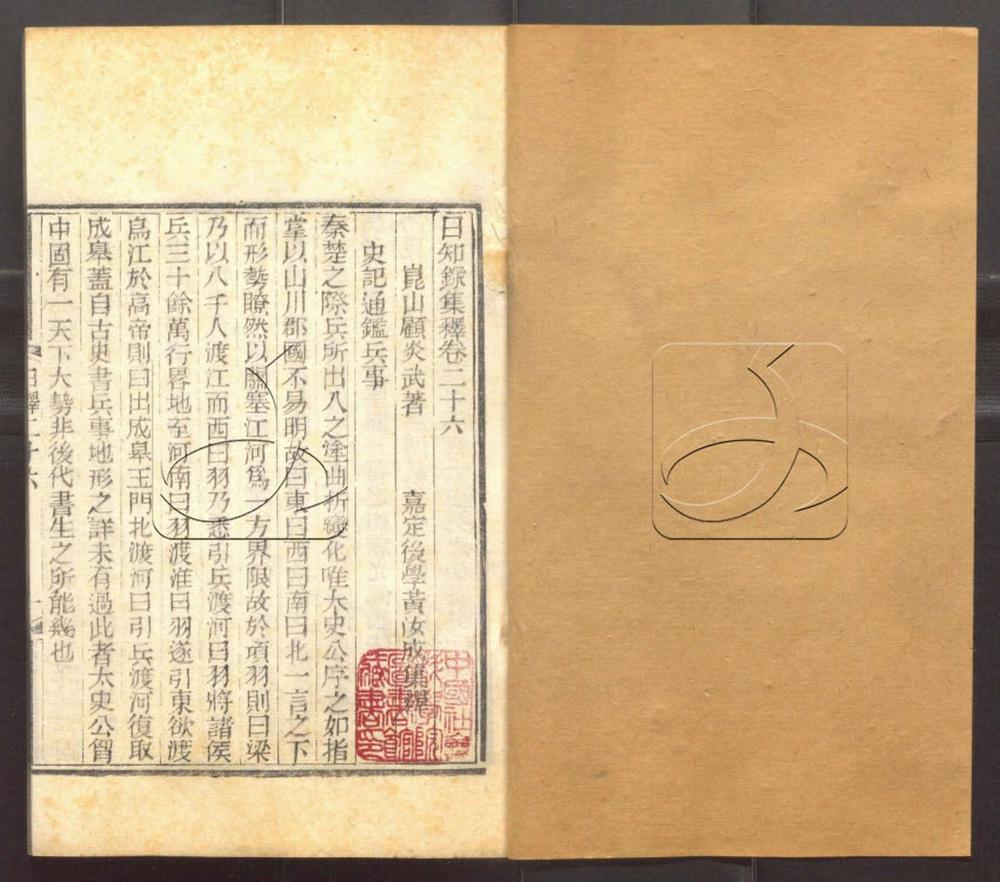 日知錄集釋卷二十六
崑山顧炎武著 嘉定後學黃汝成集釋
史記通鑑兵事
秦楚之際兵所出入之塗曲折變化唯太史公序之如指
掌以山川郡國不易明故曰東曰西曰南曰北一言之下
而形勢瞭然以關塞江河爲一方界限故於項羽則曰梁
乃以八千人渡江而西曰羽乃悉引兵渡河曰羽將諸侯
兵三十餘萬行畧地至河南曰羽渡淮曰羽遂引東欲渡
烏江於高帝則曰出成皋玉門北渡河曰引兵渡河復取
成皋蓋自古史書兵事地形之詳未有過此者太史公胷
中固有一天下大勢非後代書生之所能幾也